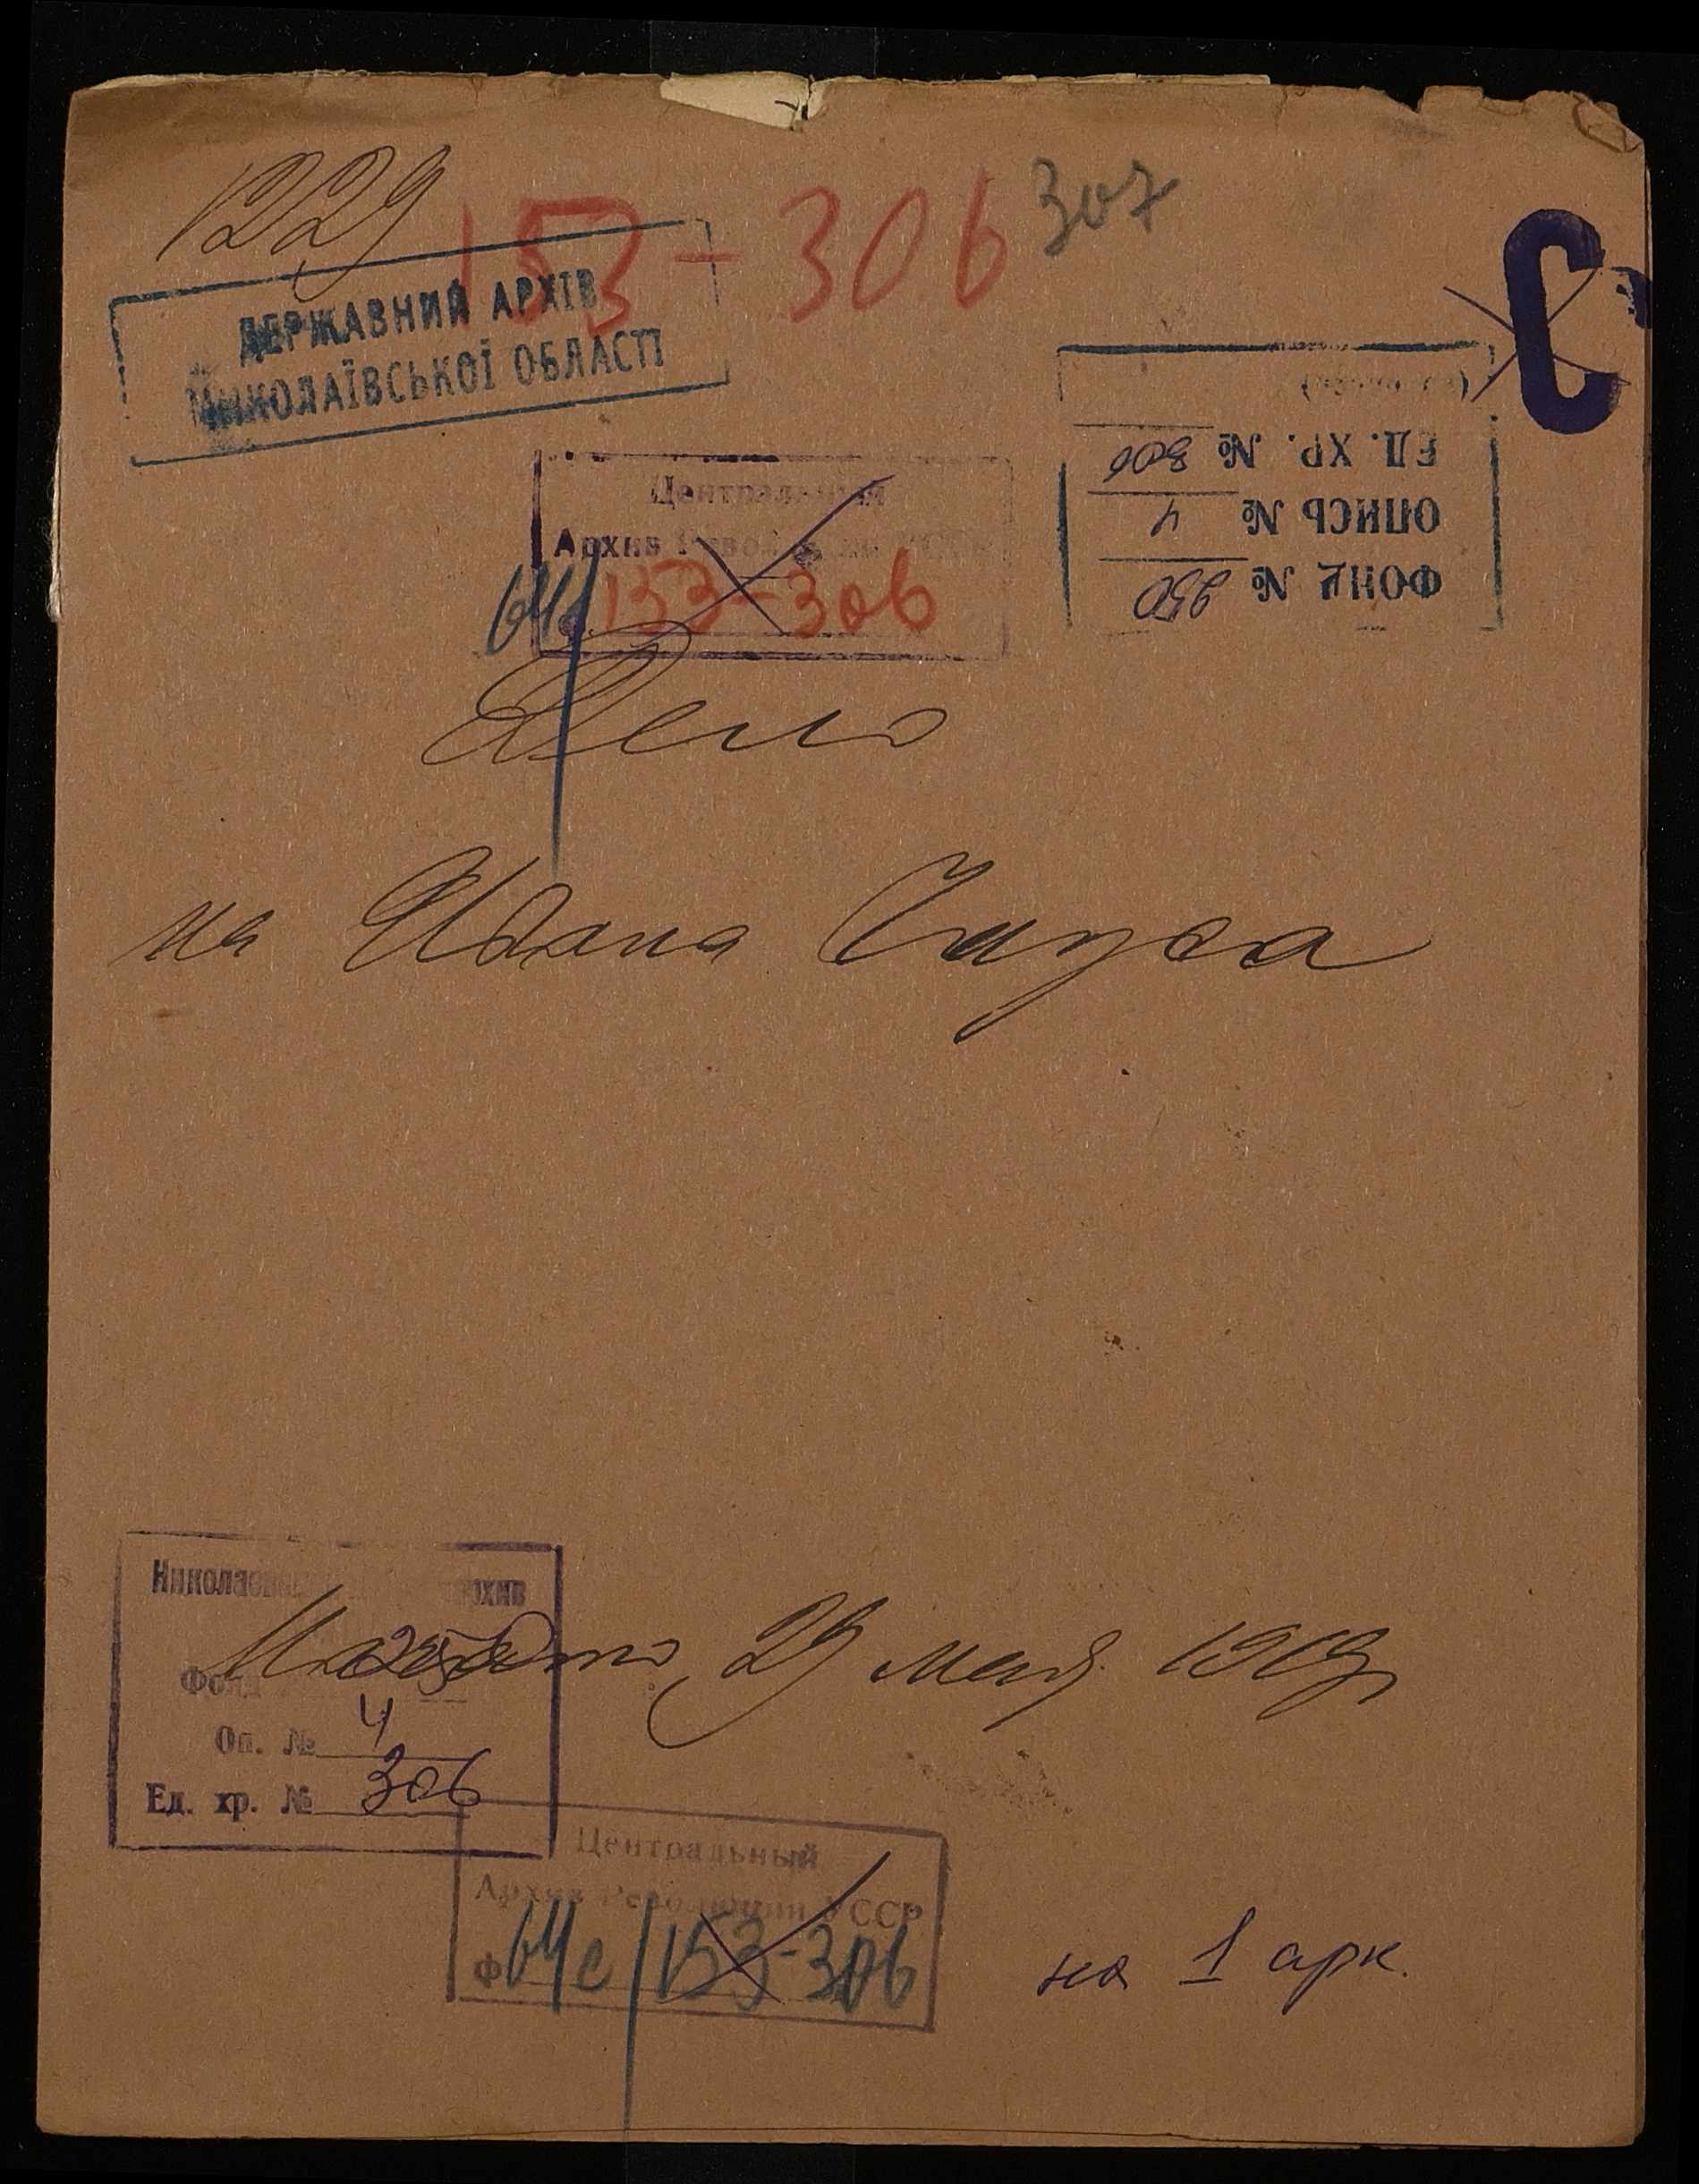 1229
153-306 307
С
ДЕРЖАВНИЙ АРХІВ
МИКОЛАЇВСЬКОЇ ОБЛАСТІ
ФОНД № 250
ОПИСЬ № 4
ЕД. ХР. № 306
Центральный
Архив Революции УССР
64с/153-306
Дело
на Ивана
Начато, 29 мая 1919 г.
Николаевский архив
Фонд 250
Оп. № 4
Ед. хр. № 306
Центральный
Архив Революции УССР
Ф 64с/153-306
на 1 арк.